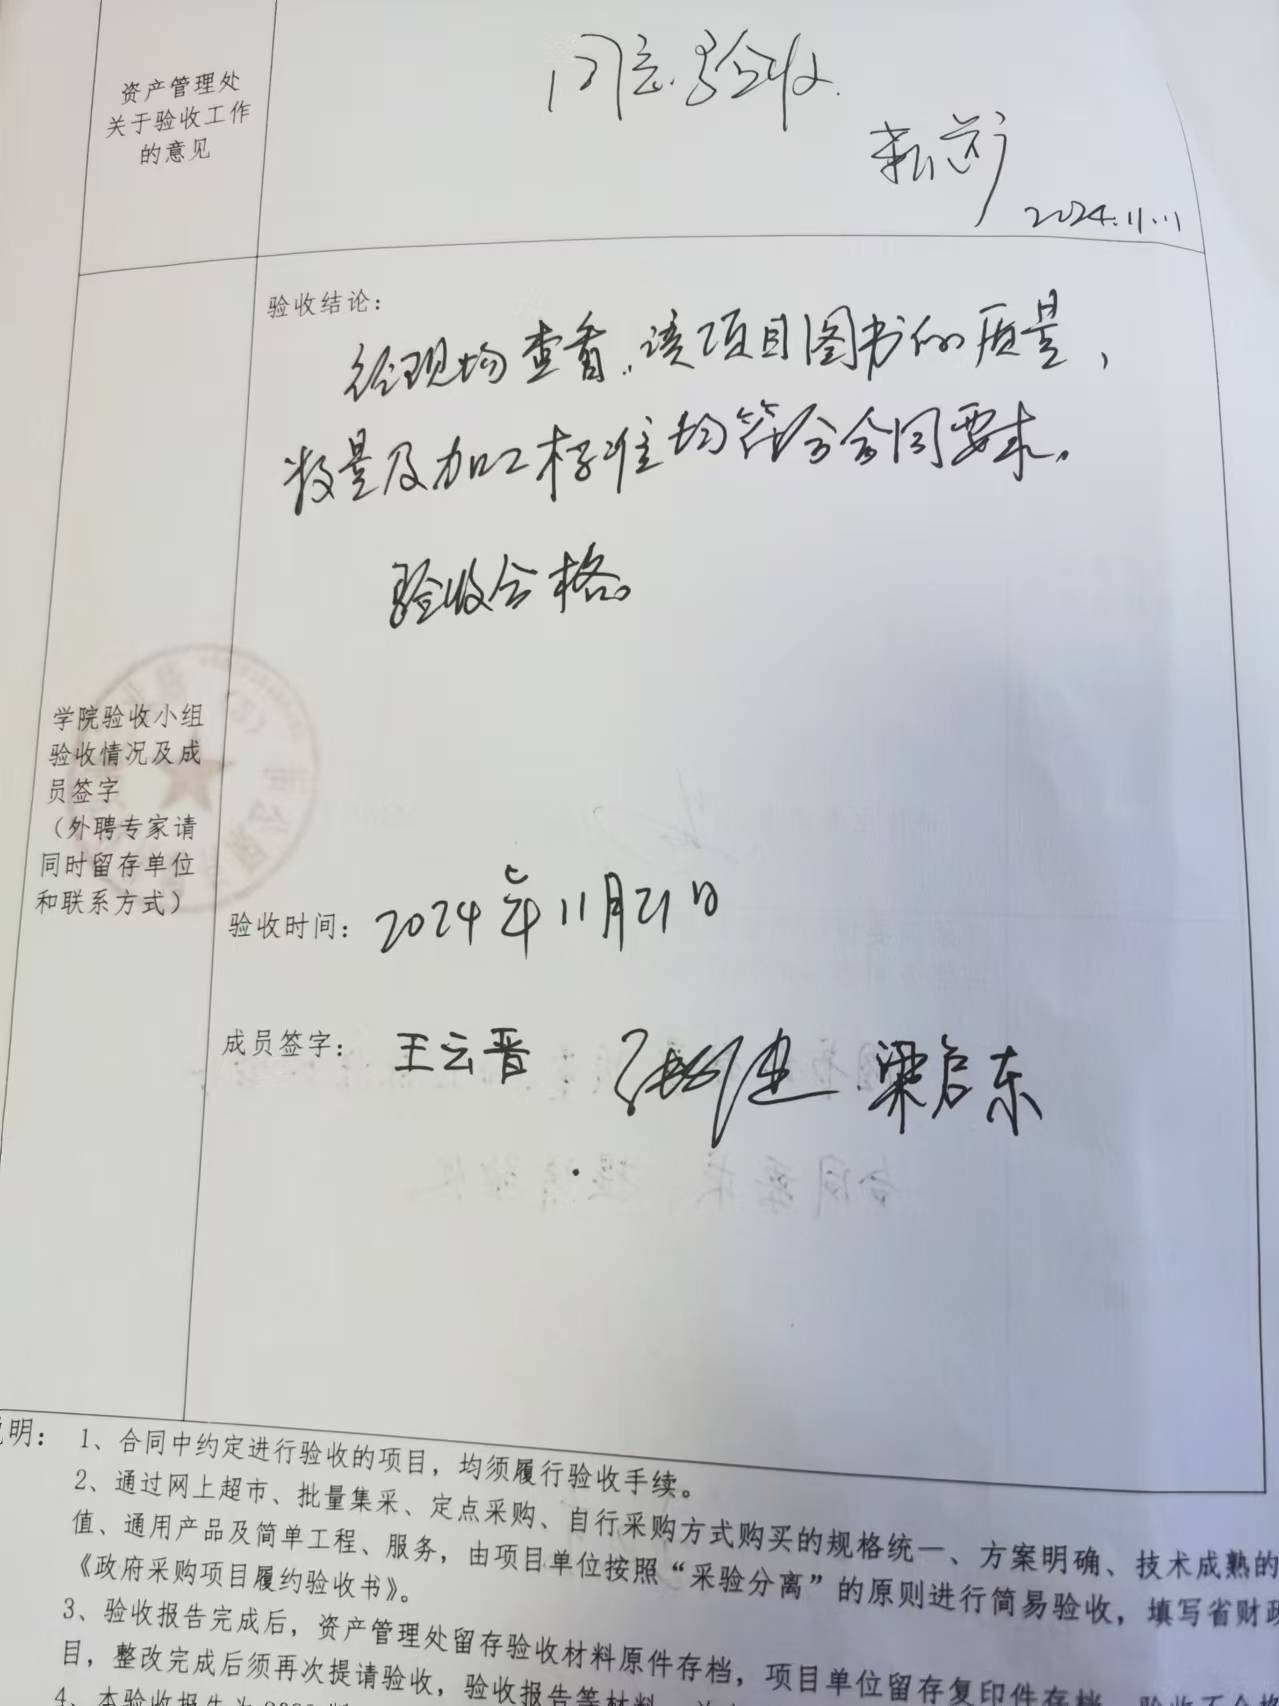 资产管理处
关于验收工作
的意见
同意验收.
2024.11.11
验收结论：
经现场查看，该项目图书的质量，
数量及加工标准均符合合同要求。
验收合格。
学院验收小组
验收情况及成
员签字
（外聘专家请
同时留存单位
和联系方式）
验收时间：2024年11月21日
成员签字：王云晋 梁启东
明：1、合同中约定进行验收的项目，均须履行验收手续。
2、通过网上超市、批量集采、定点采购、自行采购方式购买的规格统一、方案明确、技术成熟的
值、通用产品及简单工程、服务，由项目单位按照“采验分离”的原则进行简易验收，填写省财政
《政府采购项目履约验收书》。
3、验收报告完成后，资产管理处留存验收材料原件存档，项目单位留存复印件存档，验收不合格
目，整改完成后须再次提请验收，验收报告等材料
4、本验收报告为